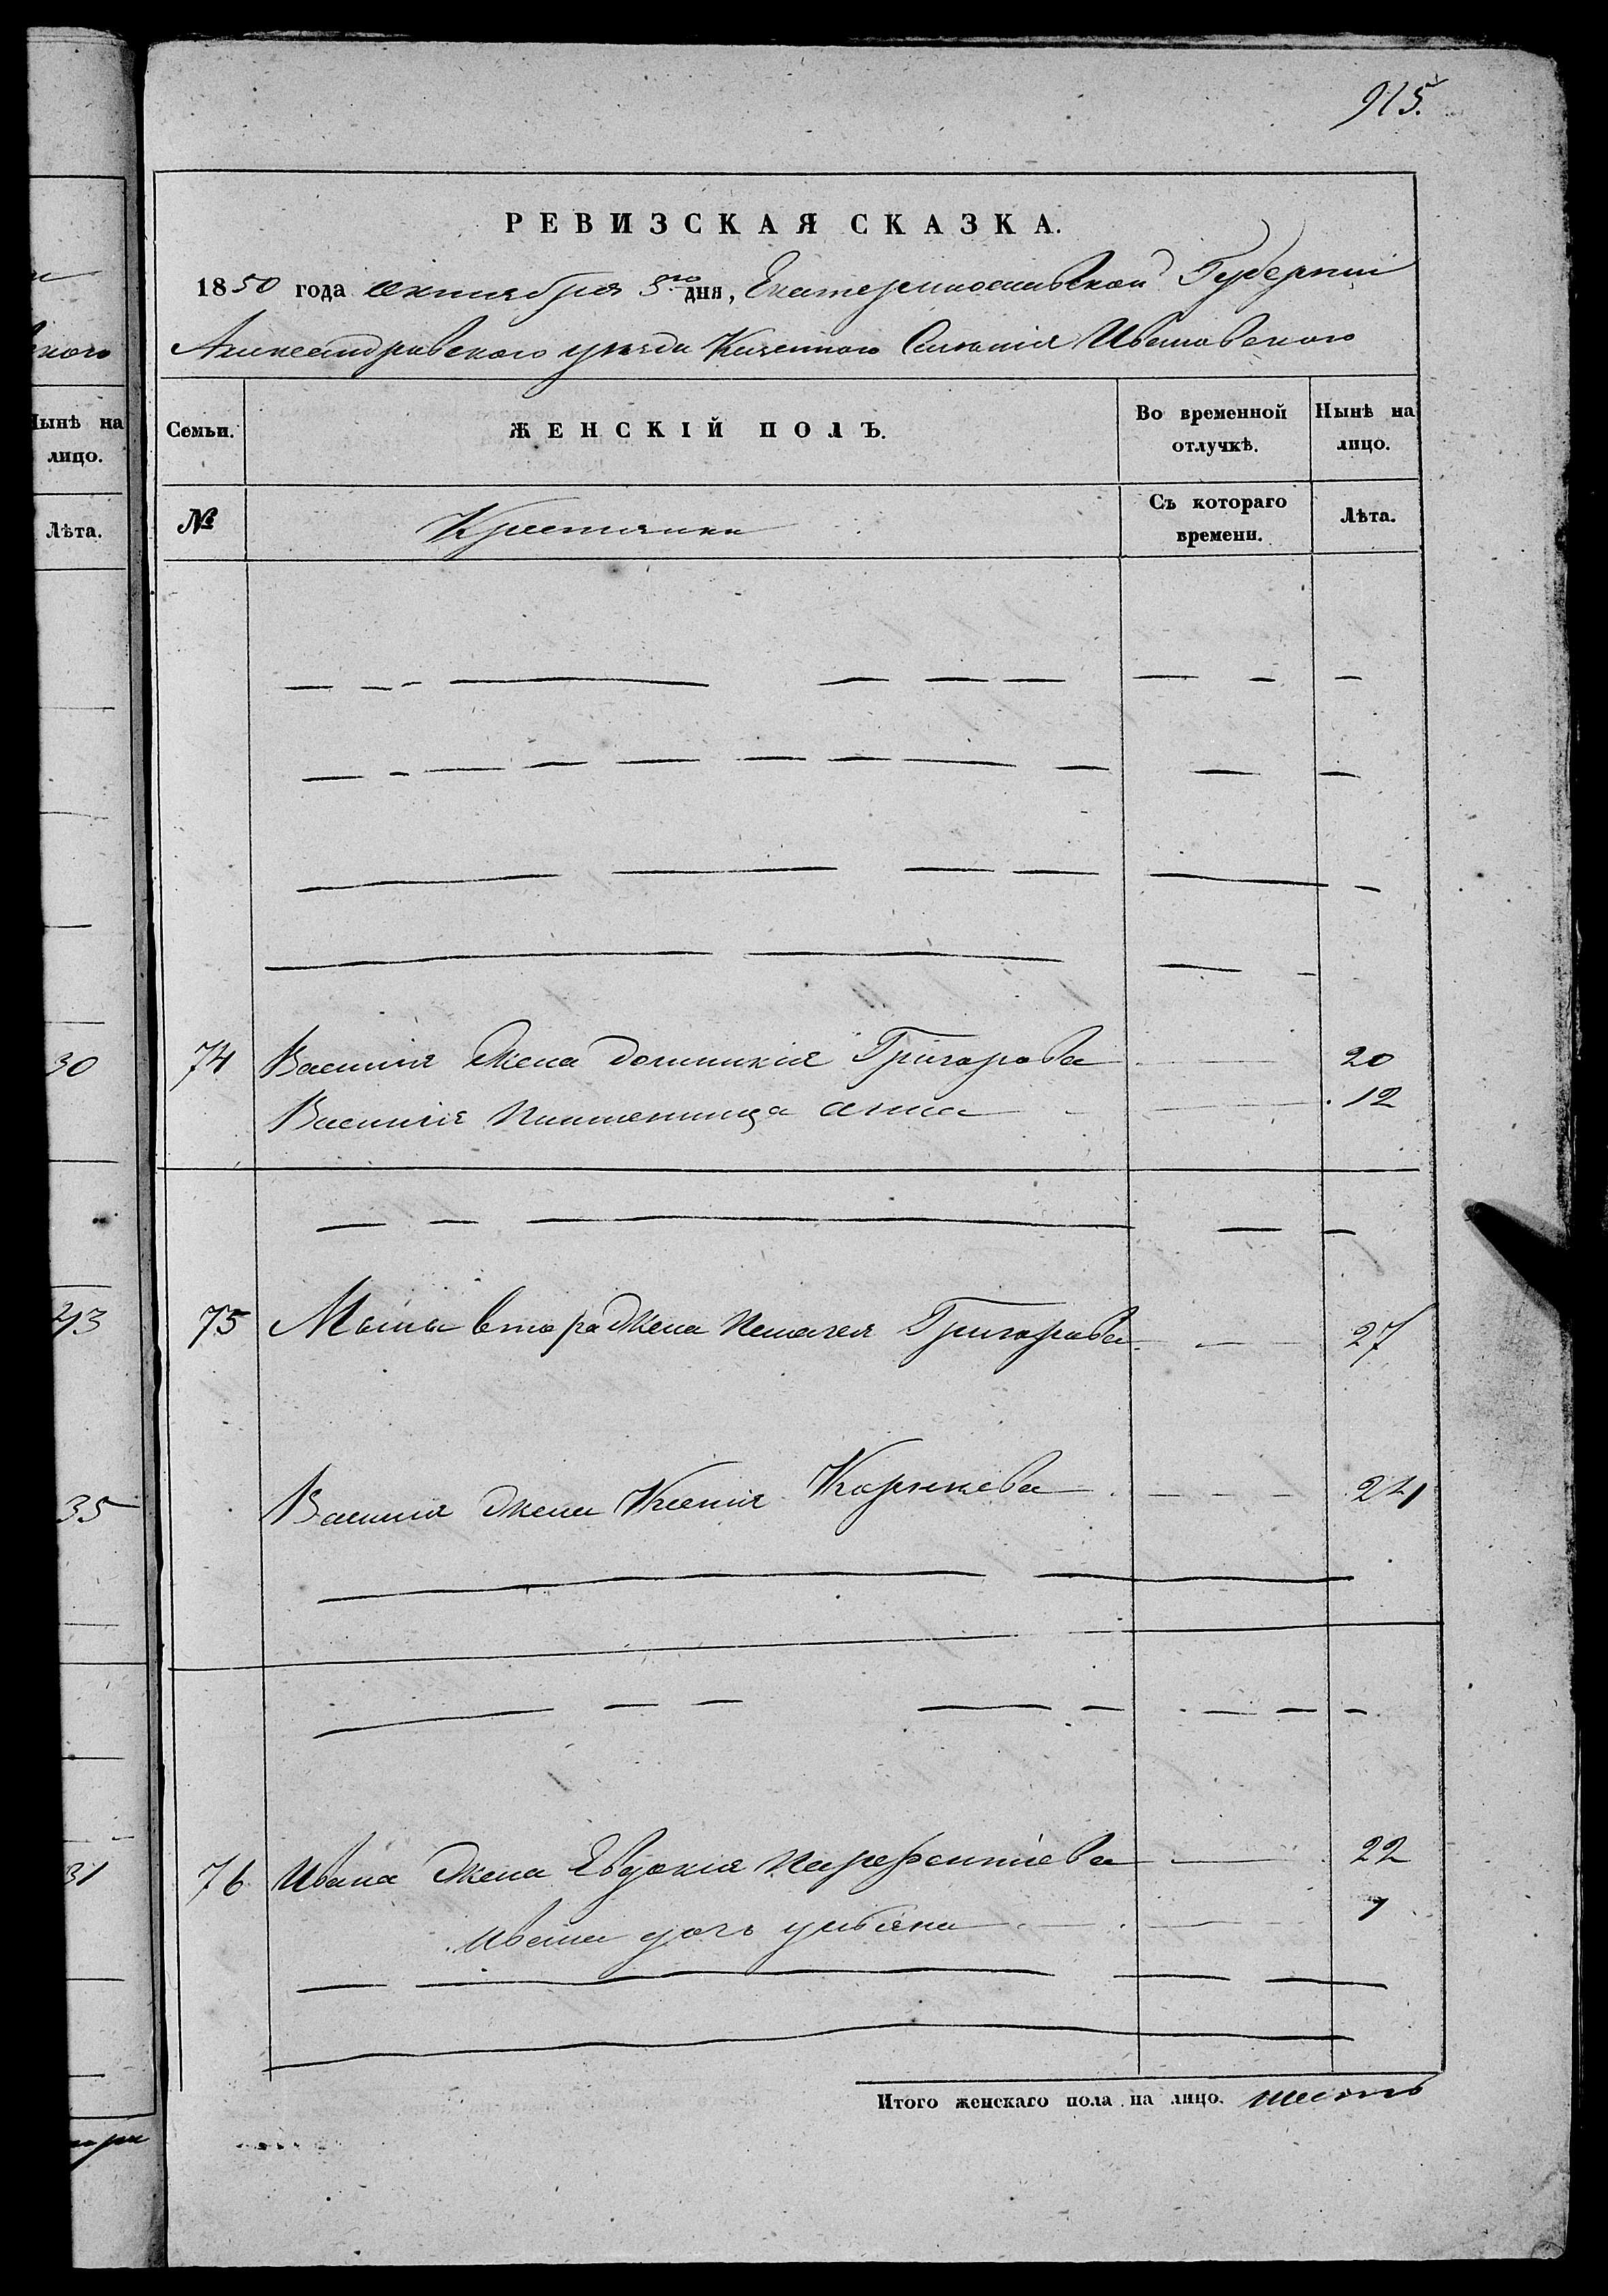 915.
РЕВИЗСКАЯ СКАЗКА.
1850 года октября 5го дня, Екатеринославской Губернии
Александровского уезда Казенного Селения Ивановского
Нынѣ на лицо.
Семьи.
ЖЕНСКІЙ ПОЛЪ.
Во временной отлучкѣ.
Нынѣ на лицо.
Лѣта.
№
Крестянки
Съ котораго времени.
Лѣта.
30
74 Василия жена Домникия Григорова 20
Василия племеница анна 12
43
75 втора жена Пелагея Григорова 27
35
Василия жена Ксения 24
31
76 Ивана жена Евдокия Парфентиева 22
Ивана дочь улияна 7
Итого женскаго пола на лицо. шесть